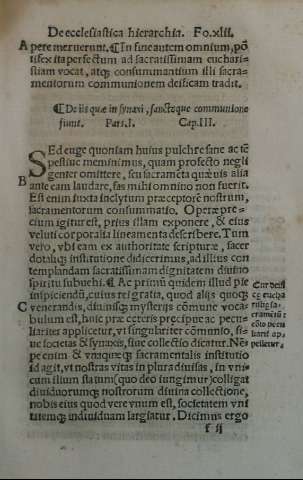 De ecclesiastica hierarchia. Fo. xlii.
A pere meruerunt. ¶ In fine autem omnium, põ
tifex ita perfectum ad sacratissimam euchari-
stiam vocat, atq; consummantium illi sacra-
mentorum communionem deificam tradit.
¶ De iis quæ in synaxi, sanctaque communione
fiunt. Pars. I. Cap. III.
SEd euge quoniam huius pulchre sane ac tẽ
pestiue meminimus, quam profecto negli
B genter omittere, seu sacramẽta quæuis alia
ante eam laudare, fas mihi omnino non fuerit.
Est enim iuxta inclytum præceptorẽ nostrum,
sacramentorum consummatio. Operæpre-
cium igitur est, prius illam exponere, & eius
veluti corporalia lineamenta describere. Tum
vero, vbi eam ex authoritate scripturæ, sacer
dotalíq; institutione didicerimus, ad illius con
templandam sacratissimam dignitatem diuino
spiritu subuehi. ¶ Ac primũ quidem illud pie
inspiciendũ, cuius rei gratia, quod aliis quoq;
C venerandis, diuinisq; mysteriis cõmune voca
bulum est, huic præ ceteris præcipuæ ac pecu-
liariter applicetur, vt singulariter cõmunio, si-
ue societas & synaxis, siue collectio dicatur. Neq
pe enim & vnaquæq; sacramentalis institutio
id agit, vt nostras vitas in plura diuisas, in vni-
cum illum statum (quo deo iungimur) colligat
diuiduorumq; nostrorum diuina collectione,
nobis eius quod vere vnum est, societatem vni
tatemq; indiuiduam largiatur. Dicimus ergo
f ii
Cur desit
ce eucha
ristię sa-
cramẽtũ
ecto pecu
liariẽ ap-
pelletur.